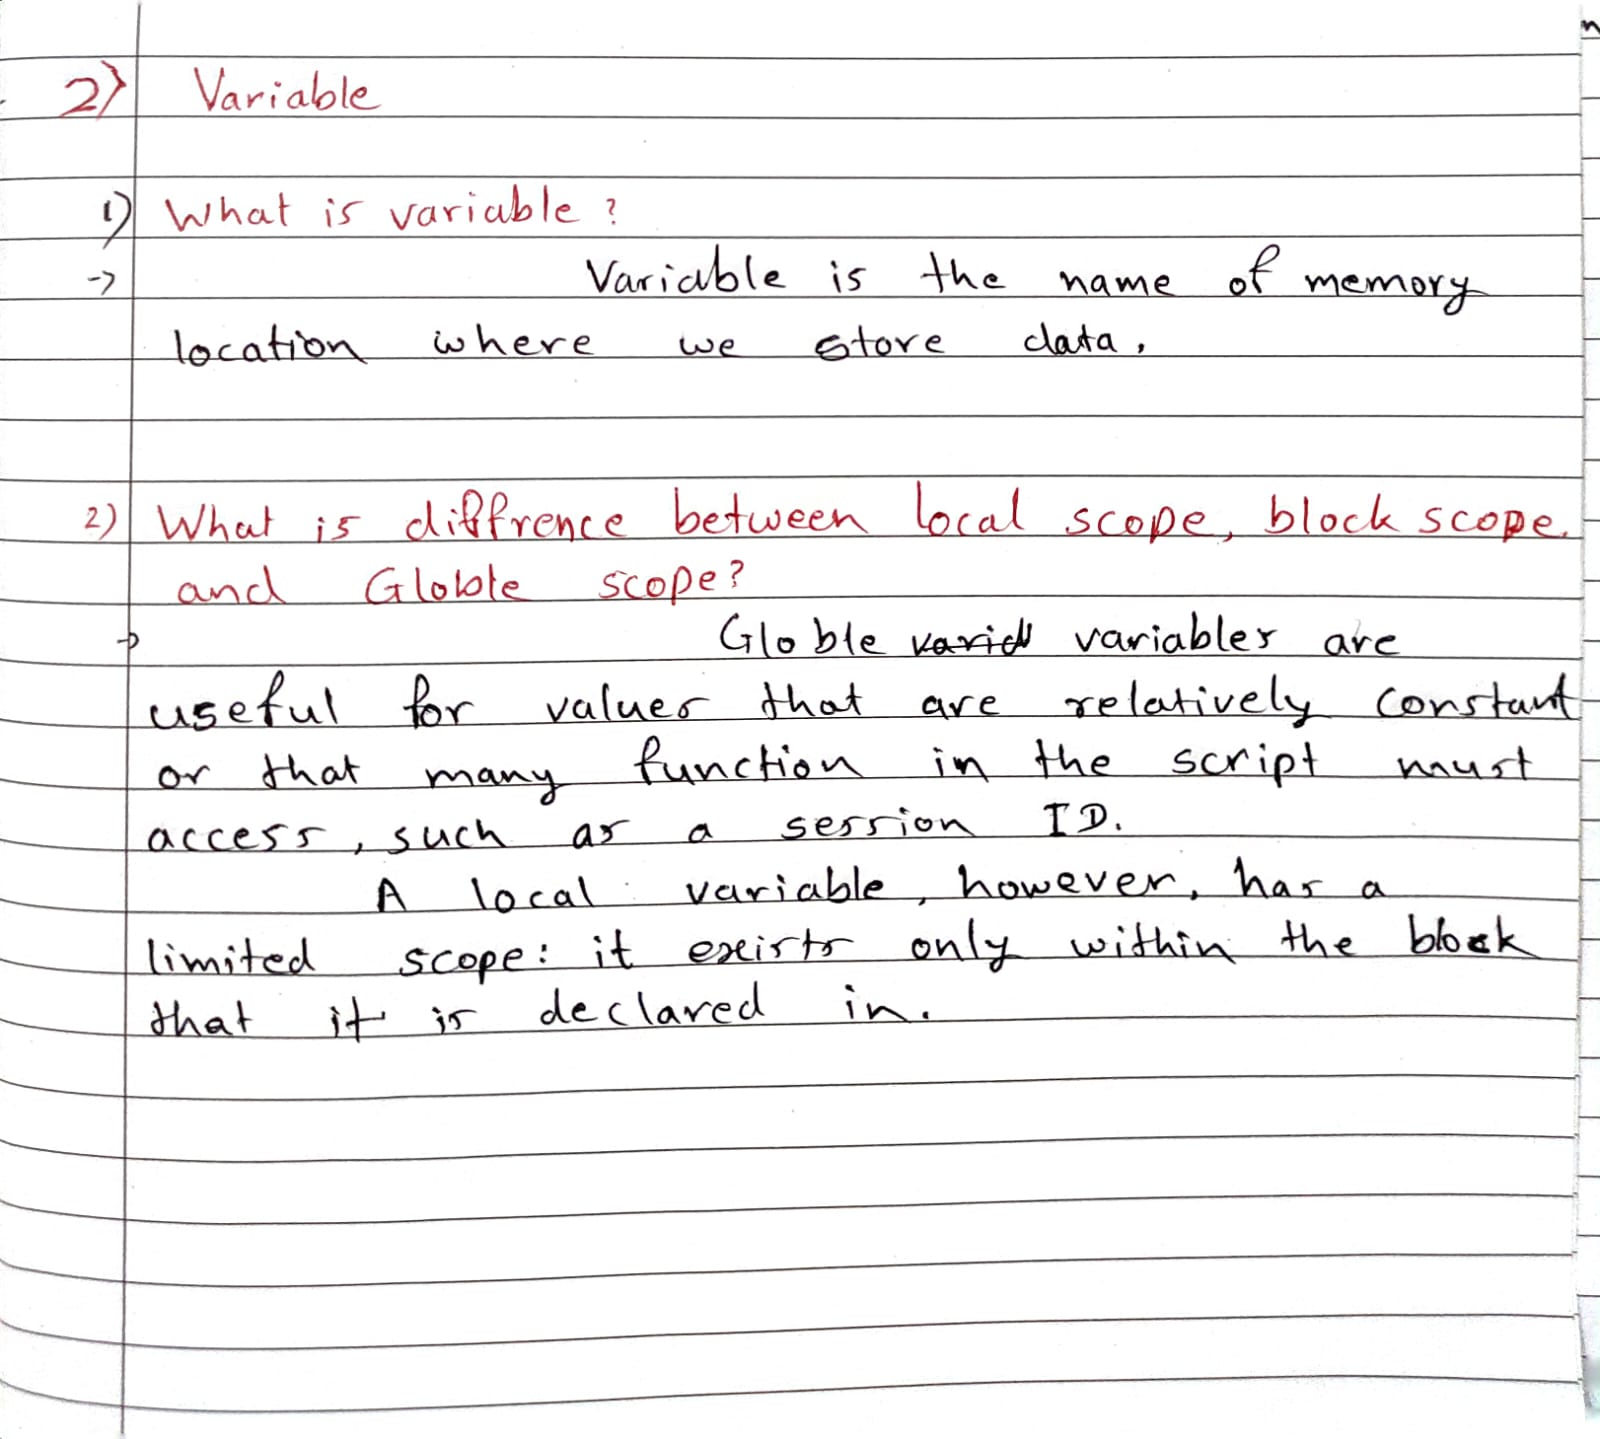 2) Variable
1) What is variable ?
-> Variable is the name of memory
location where we store data.
2) What is diffrence between local scope, block scope.
and Globle scope?
-> Globle varid variables are
useful for values that are relatively constant
or that many function in the script must
access, such as a session ID.
A local variable, however, has a
limited scope: it exists only within the block
that it is declared in.